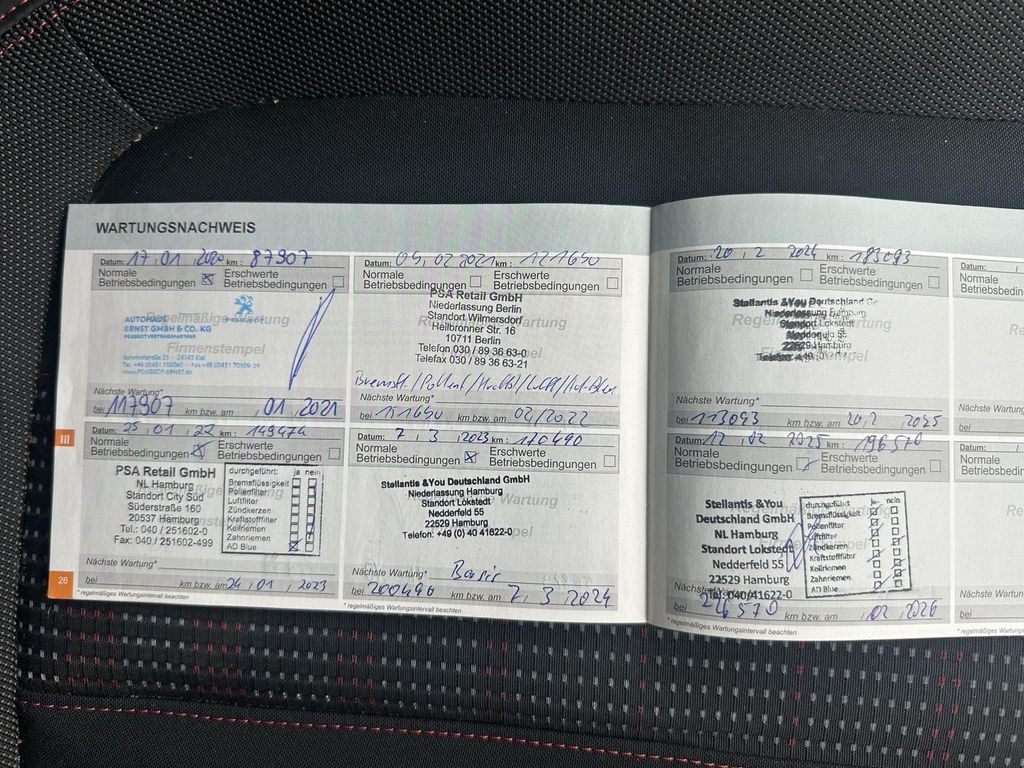 WARTUNGSNACHWEIS
Datum: 17 , 01 , 2020 km : 87907
Normale
Betriebsbedingungen
Erschwerte
Betriebsbedingungen
Regelmäßige Wartung
Firmenstempel
AUTOHAUS
ERNST GMBH & CO. KG
PEUGEOT VERTRAGSPARTNER
PEUGEOT
www.PEUGEOT-ERNST.de
Nächste Wartung*
bei 117907 km bzw. am , 01 , 2021
Datum: 09, 02 2021 km : 121650
Normale
Betriebsbedingungen
Erschwerte
Betriebsbedingungen
PSA Retail GmbH
Niederlassung Berlin
Standort Wilmersdorf
Heilbronner Str. 16
10711 Berlin
Telefon 030 / 89 36 63-0
Telefax 030 / 89 36 63-21
Nächste Wartung*
bei 151650 km bzw. am 02/2022
Datum: 25 , 01 , 22 km : 149474
Normale
Betriebsbedingungen
Erschwerte
Betriebsbedingungen
PSA Retail GmbH
NL Hamburg
Standort City Süd
Süderstraße 160
20537 Hamburg
Tel.: 040 / 251602-0
Fax: 040 / 251602-499
durchgeführt: ja nein
Bremsflüssigkeit
Pollenfilter
Luftfilter
Zündkerzen
Kraftstofffilter
Keilriemen
Zahnriemen
AD Blue
Nächste Wartung*
bei km bzw. am 24 , 01 , 2023
Datum: 7 , 3 , 2023 km : 170490
Normale
Betriebsbedingungen
Erschwerte
Betriebsbedingungen
Stellantis &You Deutschland GmbH
Niederlassung Hamburg
Standort Lokstedt
Nedderfeld 55
22529 Hamburg
Telefon: +49 (0) 40 41622-0
Nächste Wartung* Basis
bei 200490 km bzw. am 7 , 3 , 2024
26
III
* regelmäßiges Wartungsintervall beachten
* regelmäßiges Wartungsintervall beachten
Datum: 20 , 2 2024 km : 183093
Normale
Betriebsbedingungen
Erschwerte
Betriebsbedingungen
Stellantis &You Deutschland
Niederlassung Hamburg
Standort Lokstedt
Nedderfeld 55
22529 Hamburg
Nächste Wartung*
bei 113093 km bzw. am 20, 2 , 2025
Datum: 12 , 02 2025 km : 196570
Normale
Betriebsbedingungen
Erschwerte
Betriebsbedingungen
Stellantis &You
Deutschland GmbH
NL Hamburg
Standort Lokstedt
Nedderfeld 55
22529 Hamburg
Tel. 040/41622-0
durchgeführt ja nein
Bremsflüssigkeit
Pollenfilter
Luftfilter
Zündkerzen
Kraftstofffilter
Keilriemen
Zahnriemen
AD Blue
Nächste Wartung*
bei 226570 km bzw. am , 02 , 2026
* regelmäßiges Wartungsintervall beachten
Datum: /
Normale
Betriebsbedin
Nächste Wartu
bei
Datum: /
Normale
Betriebsbedin
Nächste Wartu
bei
* regelmäßiges Wa